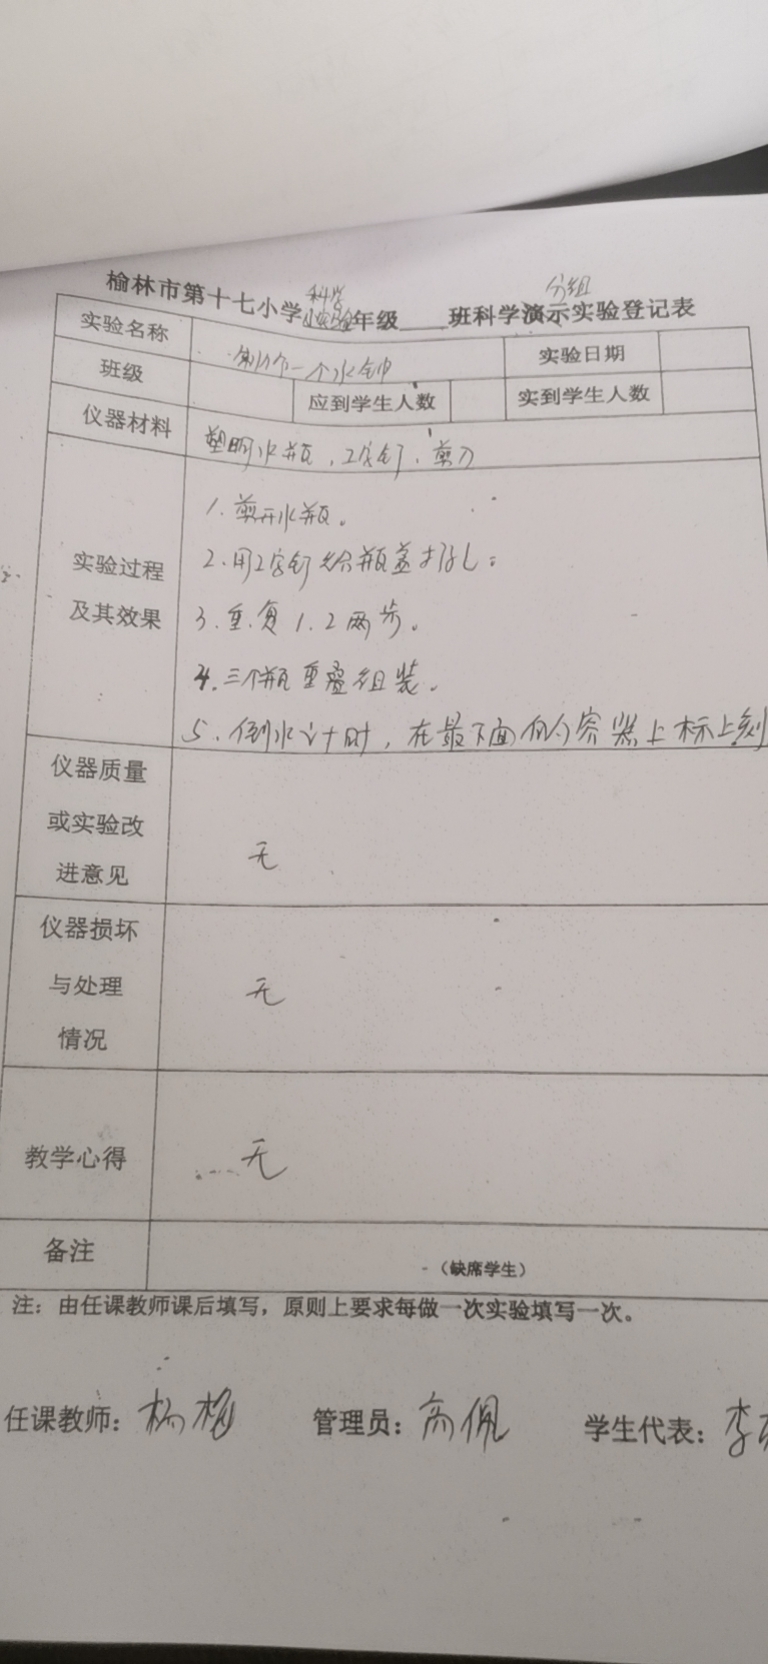 科学 分组
榆林市第十七小学实验年级____班科学演示实验登记表
实验名称 制作一个水钟 实验日期
班级 应到学生人数 实到学生人数
仪器材料 塑料水瓶，工字钉，剪刀
实验过程
及其效果
1.剪开水瓶。
2.用工字钉给瓶盖打孔。
3.重复1.2两步。
4.三个瓶重叠组装。
5.倒水计时，在最下面的容器上标上刻
仪器质量
或实验改
进意见
无
仪器损坏
与处理
情况
无
教学心得 无
备注 （缺席学生）
注：由任课教师课后填写，原则上要求每做一次实验填写一次。
任课教师：杨梅 管理员：高佩 学生代表：李